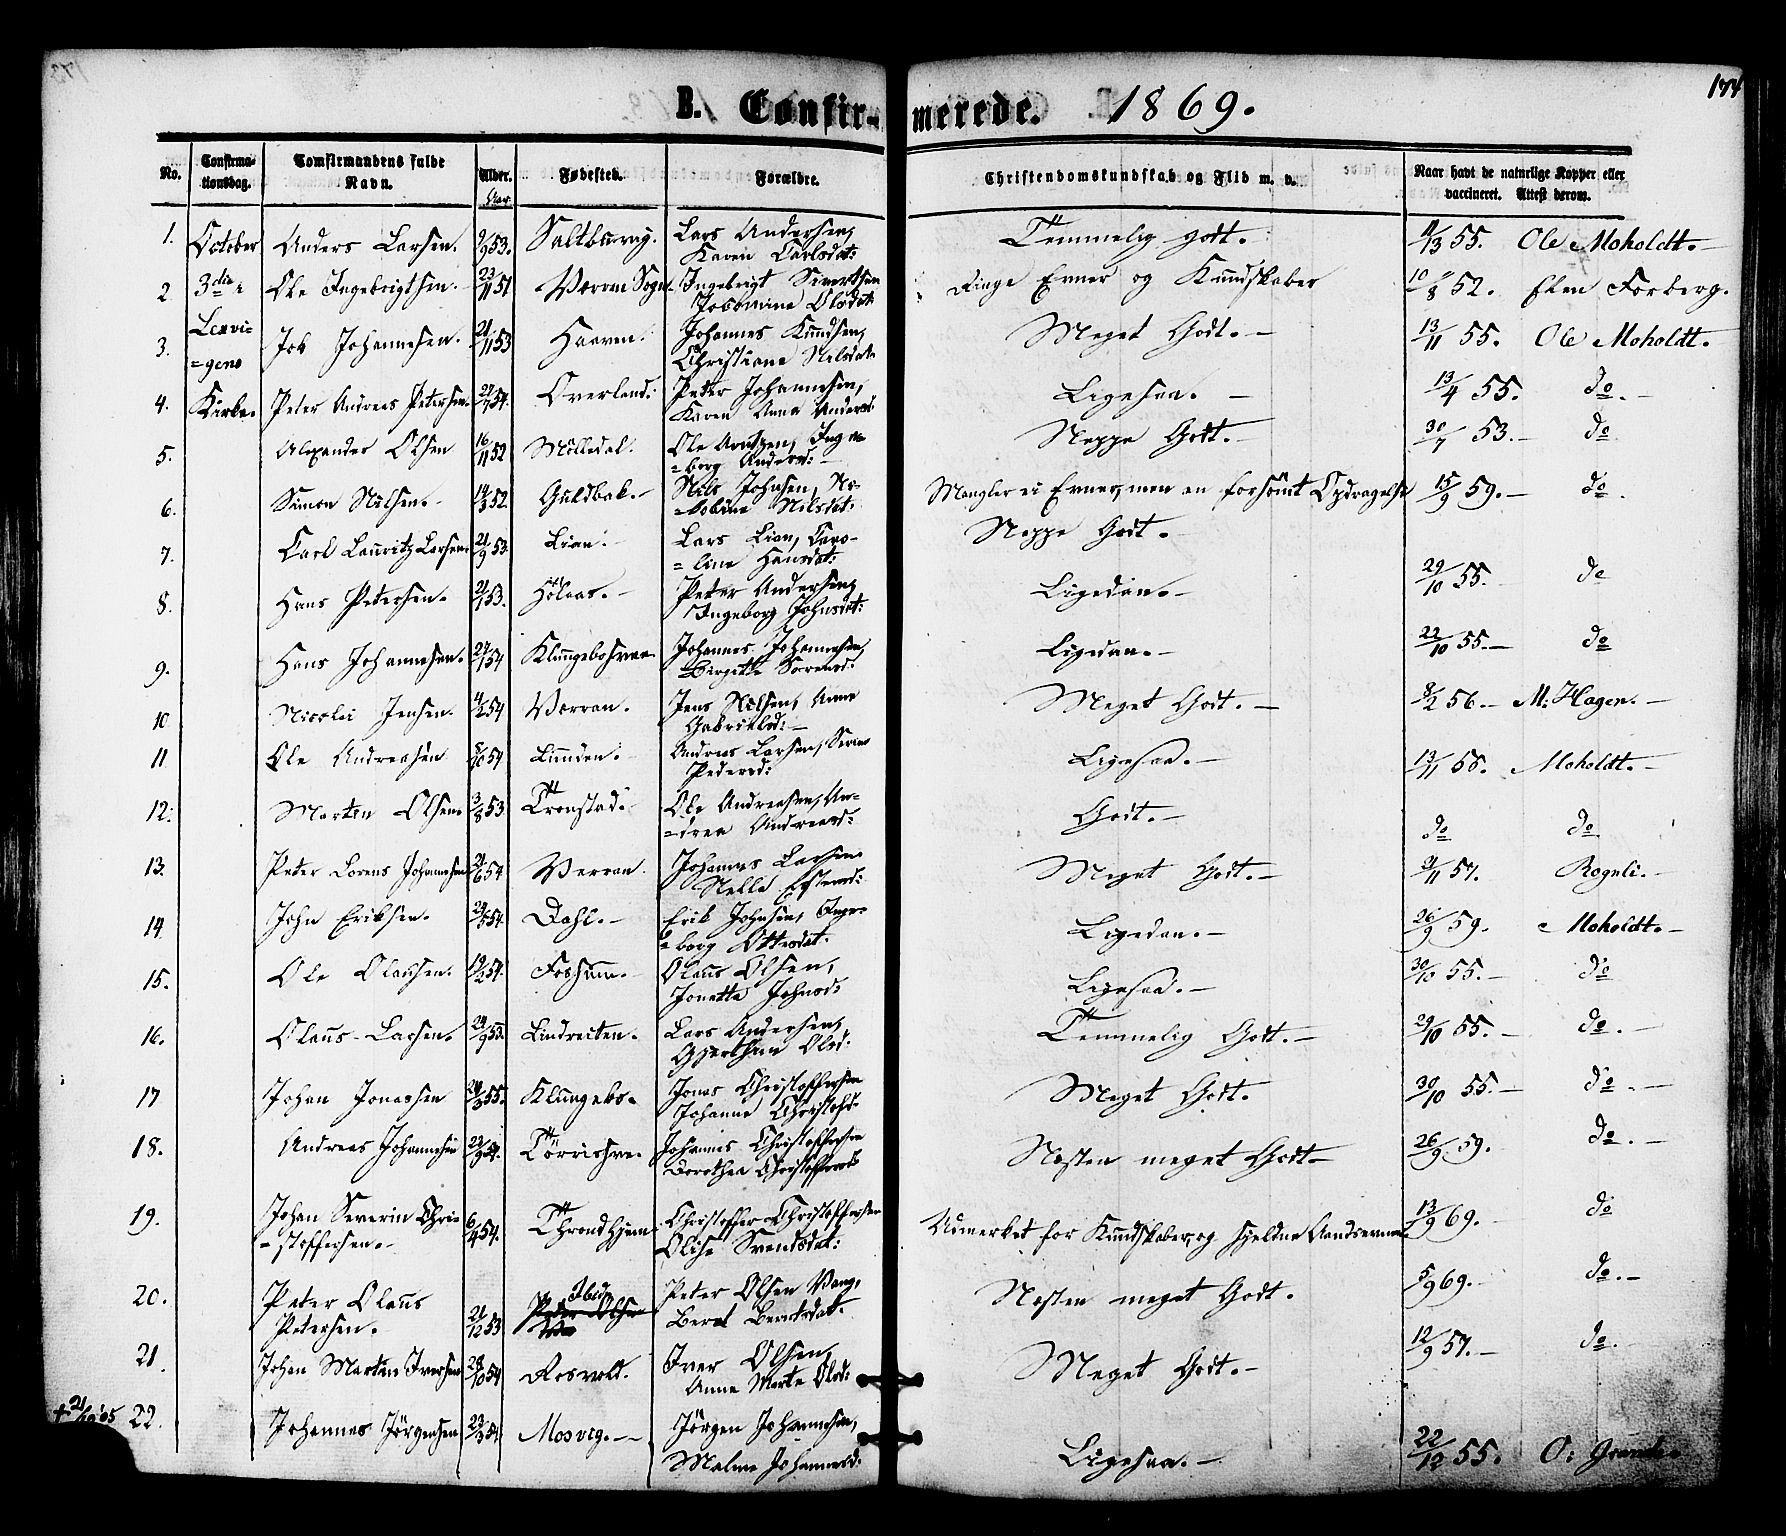 174
B. Confirmerede. 1869.
No. Confirmationsdag. Comfirmandens fulde Navn. Alder. Aar. Fødested. Forældre. Christendomskundskab og Flid m. v. Naar havt de naturlige Kopper eller vaccineret. Attest derom.
1. October Anders Larsen. 9/9 53. Saltburvig. Lars Andersen, Karen Carlsdat: Temmelig godt. 11/3 55. Ole Moholdt.
2. 3die Ole Ingebrigtsen. 23/11 51 Værran Sogn. Ingebrigt Sivertsen Olsdat: Ringe Evner og Kundskaber 10/8 52. Elen Forberg.
3. Lexvi=gens Job Johannesen. 21/11 53 Haaven. Johannes Knudsen, Christiane Nilsdat. Meget Godt. 13/11 55. Ole Moholdt.
4. Kirke. Peter Andreas Petersen. 54. Overland: Peter Johannesen, Karen Anna Andersd: Ligesaa. 13/4 55. do.
5. Alexander Olsen 16/11 52 Mölledal. Ole Arntzen, Inge=borg Andersd: Neppe Godt. 30/7 53. do
6. Simon Nilsen. 14/3 52. Guldbak. Nils Johnsen, Nilsdat: Mangler ei Evner, men en forsömt Opdragelse 15/9 59. do.
7. Carl Lauritz Larsen. 21/9 53. Lian. Lars Lian, Caro=line Hansdat: Neppe Godt.
8. Hans Petersen. 21/1 53. Hölaas. Peter Andersen, Ingeborg Johnsdat: Ligedan. 29/10 55. do
9. Hans Johannesen. 27/1 54 Johannes Johannesen, Birgitte Ligedan. 22/10 55. do
10 Nicolai Jensen. 4/2 54 Værran. Jens Nilsen, Anne Gabrielsd: Meget Godt. 8/2 56. M: Hagen.
11 Ole Andreasen 8/10 54 Lunden. Andreas Larsen, Pedersd: Ligesaa. 13/11 55. Moholdt.
12: Morten Olsen 3/8 53 Tronstad. Ole Andreasen, An=drea Andreasd: Godt. do do
13. Peter Lorens Johannesen 21/6 54 Verran. Johannes Larsen Meget Godt. 21/11 57. Rognli.
14. John Eriksen. 29/5 54. Dahl. Erik Johnsen, Inge=borg Ottesdat. Ligedan. 26/9 59. Moholdt.
15. Ole Olaussen. 19/2 54. Fossum. Olaus Olsen, Jonetta Johnsd: Ligesaa. 30/10 55. do
16. Olaus Larsen. 24/9 53. Lindreiten. Lars Andersen, Olsd: Temmelig Godt. 29/10 55. do.
17 Johan Jonassen 28/3 55. Klungebo. Jonas Christoffersen Johanna Christofd: Meget Godt. 30/10 55. do.
18. Andreas Johannesen 23/9 54. Johannes Christoffersen Dorothea Christoffersd: Næsten meget Godt 26/9 59. do.
19. Johan Severin Chri=stoffersen. 6/4 54. Throndhjem Christoffer Christoffersen Olise Svendsdat: Udmerket for Kundskaber, og sjeldne Aandsevner. 13/9 69. do
20. Peter Olaus Petersen. 21/12 53 Ibid Peter Olsen Vang, Beret Berntsdat: Næsten meget Godt. 5/9 69. do.
21. Johan Martin Iversen 28/10 54 Rosvold. Iver Olsen, Anne Marta Olsd: Meget Godt. 12/9 57. do.
+ 21/10 '05 22. Johannes Jörgensen 23/3 54. Mosvig. Jörgen Johannesen, Malene Johannesd: Ligesaa. 22/12 55. O: Grande